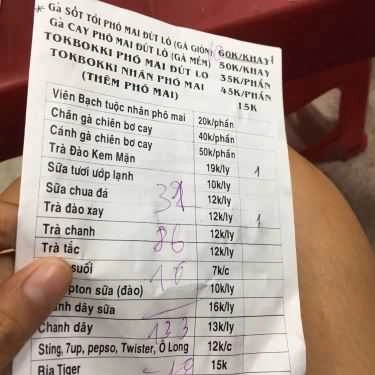 * GÀ SỐT TỎI PHÔ MAI ĐÚT LÒ (GÀ GIÒN) 60K/KHAY
GÀ CAY PHÔ MAI ĐÚT LÒ (GÀ MỀM) 50K/KHAY
TOKBOKKI PHÔ MAI ĐÚT LÒ 35K/PHẦN
TOKBOKKI NHÂN PHÔ MAI 45K/PHẦN
(THÊM PHÔ MAI) 15K
Viên Bạch tuộc nhân phô mai 20k/phần
Chân gà chiên bơ cay 40k/phần
Cánh gà chiên bơ cay 50k/phần
Trà Đào Kem Mặn 19k/ly 1
Sữa tươi ướp lạnh 10k/ly
Sữa chua đá 12k/ly
Trà đào xay 12k/ly 1
Trà chanh 12k/ly
86
Trà tắc 12k/ly
suối 7k/c
pton sữa (đào) 10k/ly
nh dây sữa 16k/ly
Chanh dây 13k/ly
Sting, 7up, pepso, Twister, Ô Long 12k/c
Bia Tiger 15k